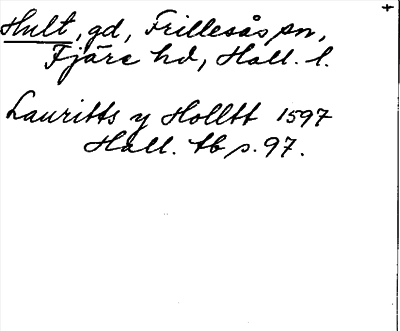 Hult, gd, Frillesås sn,
Fjäre hd, Hall. l.
Lauritts y Holltt 1597
Hall. tb s. 97.